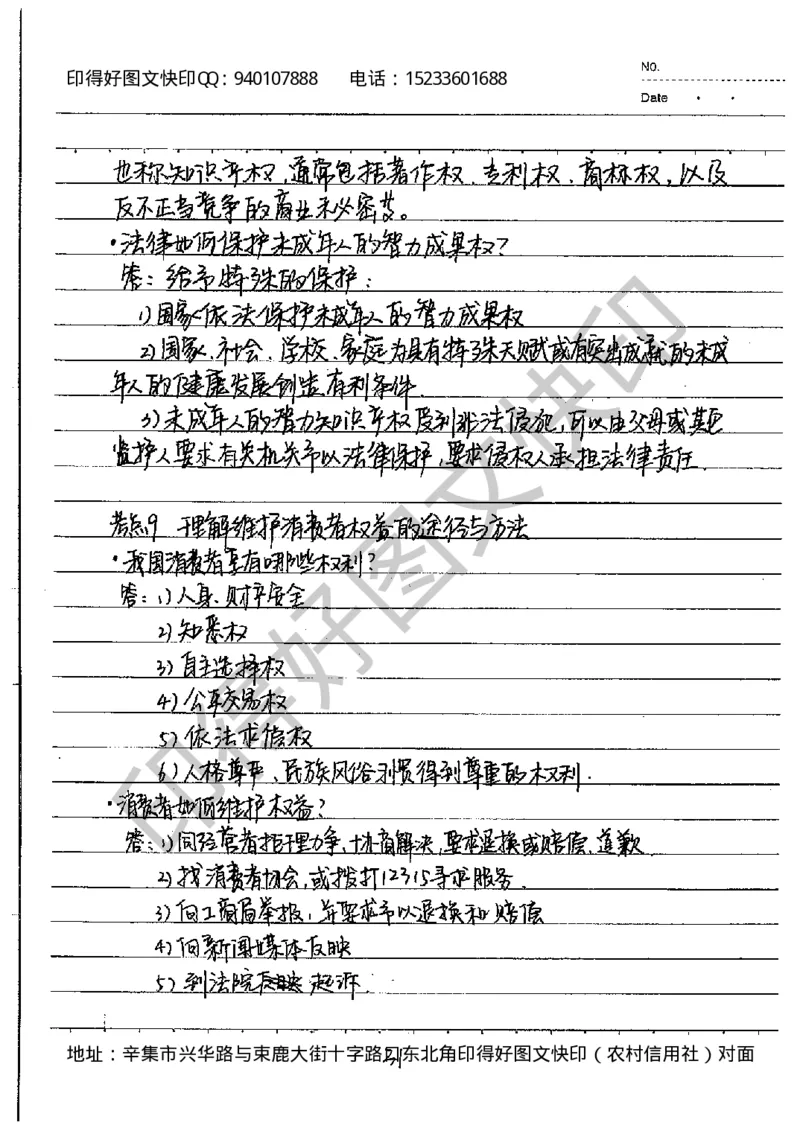 印得好图文快印QQ：940107888 电话：15233601688
No.
Date
也称知识产权，通常包括著作权、专利权、商标权，以及
反不正当竞争的商业秘密等。
·法律如何保护未成年人的智力成果权？
答：给予特殊的保护：
1）国家依法保护未成年人的智力成果权
2）国家、社会、学校、家庭为具有特殊天赋或有突出成就的未成
年人的健康发展创造有利条件.
3）未成年人的智力知识产权受到非法侵犯，可以由父母或其它
监护人要求有关机关予以法律保护，要求侵权人承担法律责任.
考点9 理解维护消费者权益的途径与方法
·我国消费者享有哪些权利？
答：1）人身、财产安全
2）知悉权
3）自主选择权
4）公平交易权
5）依法求偿权
6）人格尊严、民族风俗习惯得到尊重的权利.
·消费者如何维护权益？
答：1）同经营者据理力争，协商解决，要求退换或赔偿、道歉.
2）找消费者协会，或拨打12315寻求服务.
3）向工商局举报，并要求予以退换和赔偿
4）向新闻媒体反映
5）到法院起诉.
地址：辛集市兴华路与束鹿大街十字路口东北角印得好图文快印（农村信用社）对面
印得好图文快印